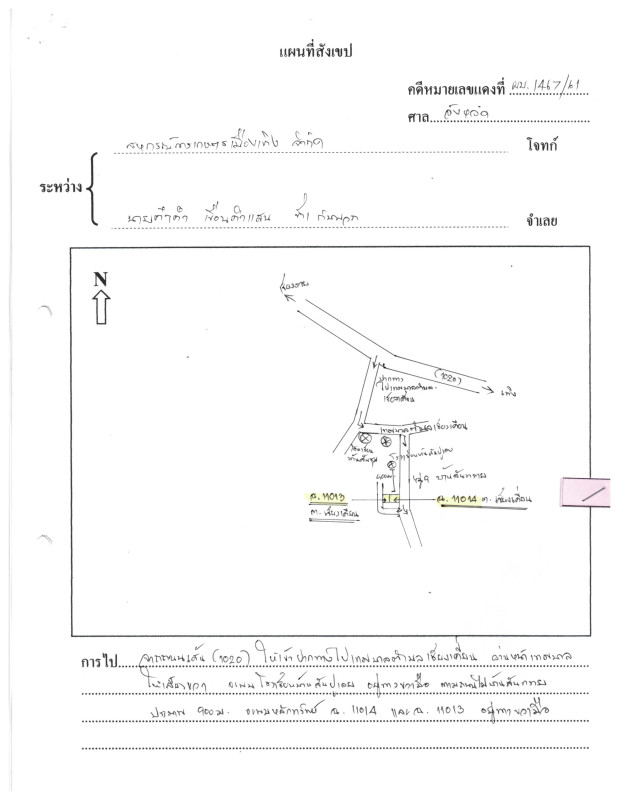 แผนที่สังเขป
คดีหมายเลขแดงที่ ผบ. 1467/61
ศาล
สหกรณ์การเกษตรเมืองเทิง จำกัด โจทก์
ระหว่าง
จำเลย
N
(1020)
เทิง
ปากทาง
ไปเทศบาลตำบล
เชียงเคี่ยน
เทศบาลตำบลเชียงเคี่ยน
บ้านสันทราย
ฉ. 11013
ต. เชียงเคี่ยน
ฉ. 11014 ต. เชียงเคี่ยน
การไป จากถนนเส้น (1020) ให้เข้าปากทางไปเทศบาลตำบลเชียงเคี่ยน ผ่านหน้าเทศบาล
ให้เลี้ยวขวา จะพบโรงเรียนบ้านสันปูเลย อยู่ทางขวามือ ตามถนนไปบ้านสันทราย
ประมาณ 900 ม. จะพบหลักทรัพย์ ฉ. 11014 และ ฉ. 11013 อยู่ทางขวามือ